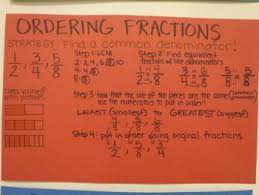 ORDERING FRACTIONS
STRATEGY: Find a common denominator!
1/2, 3/4, 5/8
Step 1: LCM
2: 2, 4, 6, 8, 10
4: 4, 8
8: 8
Step 2: Find equivalent
fractions w/ like denominators
1/2 = 4/8 3/4 = 6/8 5/8 = 5/8
with pictures
Step 3: now that the size of the pieces are the same (common)
use the numerators to put in order!
LEAST (smallest) → GREATEST (biggest)
4/8, 5/8, 6/8
Step 4: put in order using original fractions
1/2, 5/8, 3/4